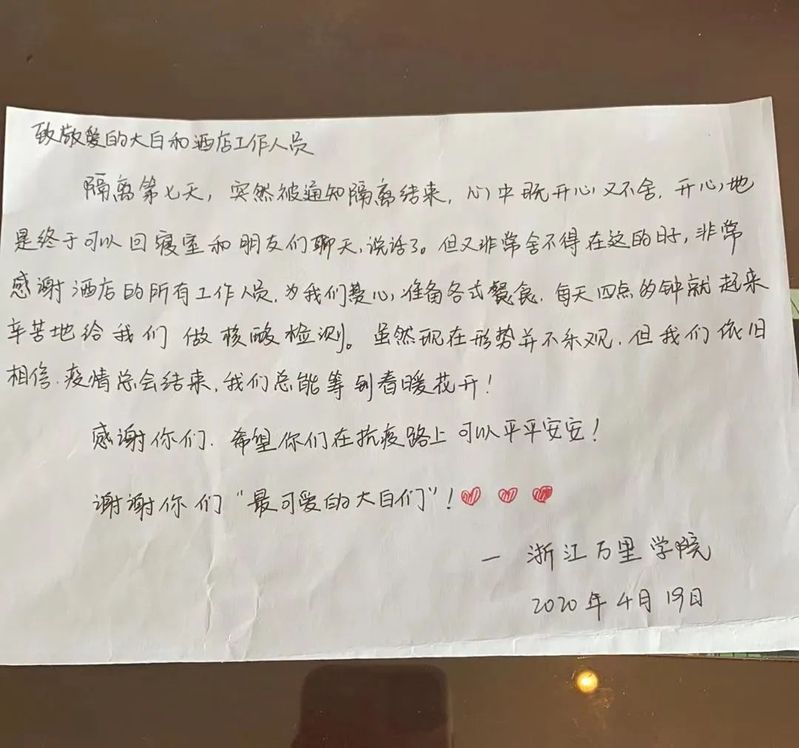 致敬爱的大白和酒店工作人员
隔离第七天，突然被通知隔离结束，心中既开心又不舍，开心地
是终于可以回寝室和朋友们聊天，说话了。但又非常舍不得在这的日子，非常
感谢酒店的所有工作人员，为我们爱心，准备各式餐食，每天四点的钟就起来
辛苦地给我们做核酸检测。虽然现在形势并不乐观，但我们依旧
相信，疫情总会结束，我们总能等到春暖花开！
感谢你们，希望你们在抗疫路上可以平平安安！
谢谢你们“最可爱的大白们”！
— 浙江万里学院
2020年4月19日